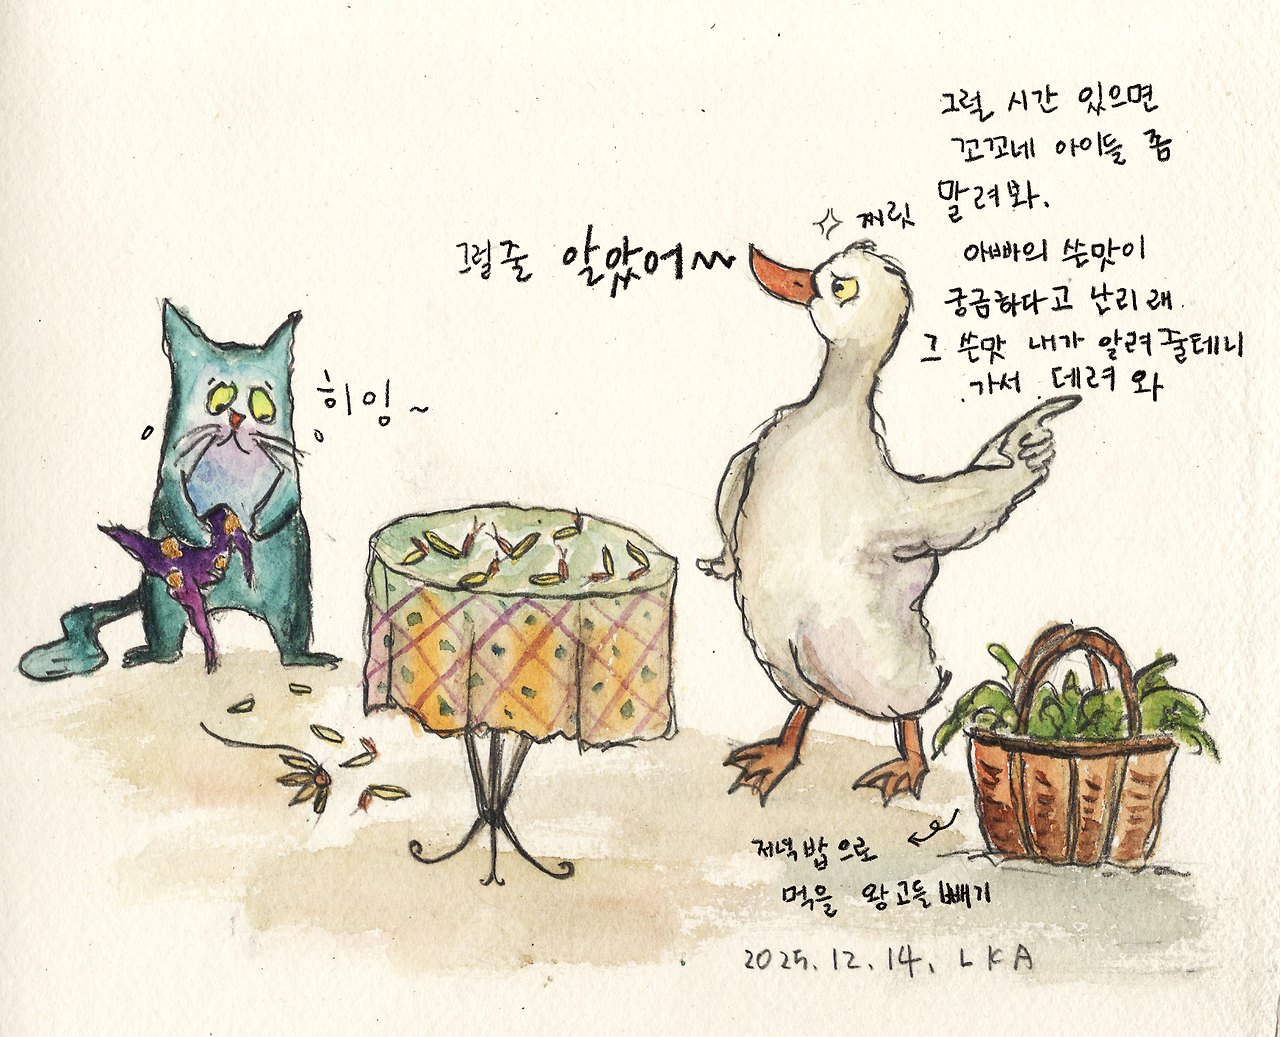 그럴 시간 있으면
꼬꼬네 아이들 좀
말려봐.
아빠의 쓴맛이
궁금하다고 난리래.
그 쓴맛 내가 알려줄테니
가서 데려와
찌릿
그럴줄 알았어~~
히잉~
저녁밥으로
먹을 왕고들빼기
2025.12.14. LKA